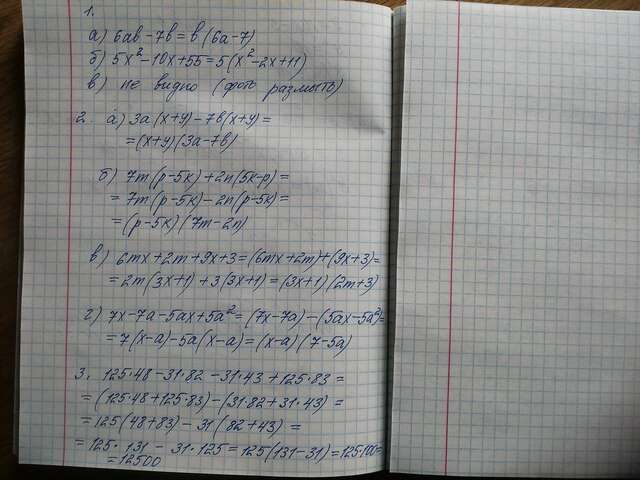 1.
а) 6ав - 7в = в(6а-7)
б) 5x² - 10x + 55 = 5(x² - 2x + 11)
в) не видно (фото размыто)
2. а) 3а(x+y) - 7в(x+y) =
= (x+y)(3а-7в)
б) 7m(p-5к) + 2n(5к-p) =
= 7m(p-5к) - 2n(p-5к) =
= (p-5к)(7m-2n)
в) 6mx + 2m + 9x + 3 = (6mx+2m)+(9x+3) =
= 2m(3x+1) + 3(3x+1) = (3x+1)(2m+3)
г) 7x - 7а - 5аx + 5а² = (7x-7а) - (5аx-5а²) =
= 7(x-а) - 5а(x-а) = (x-а)(7-5а)
3. 125·48 - 31·82 - 31·43 + 125·83 =
= (125·48 + 125·83) - (31·82 + 31·43) =
= 125(48+83) - 31(82+43) =
= 125·131 - 31·125 = 125(131-31) = 125·100 =
= 12500